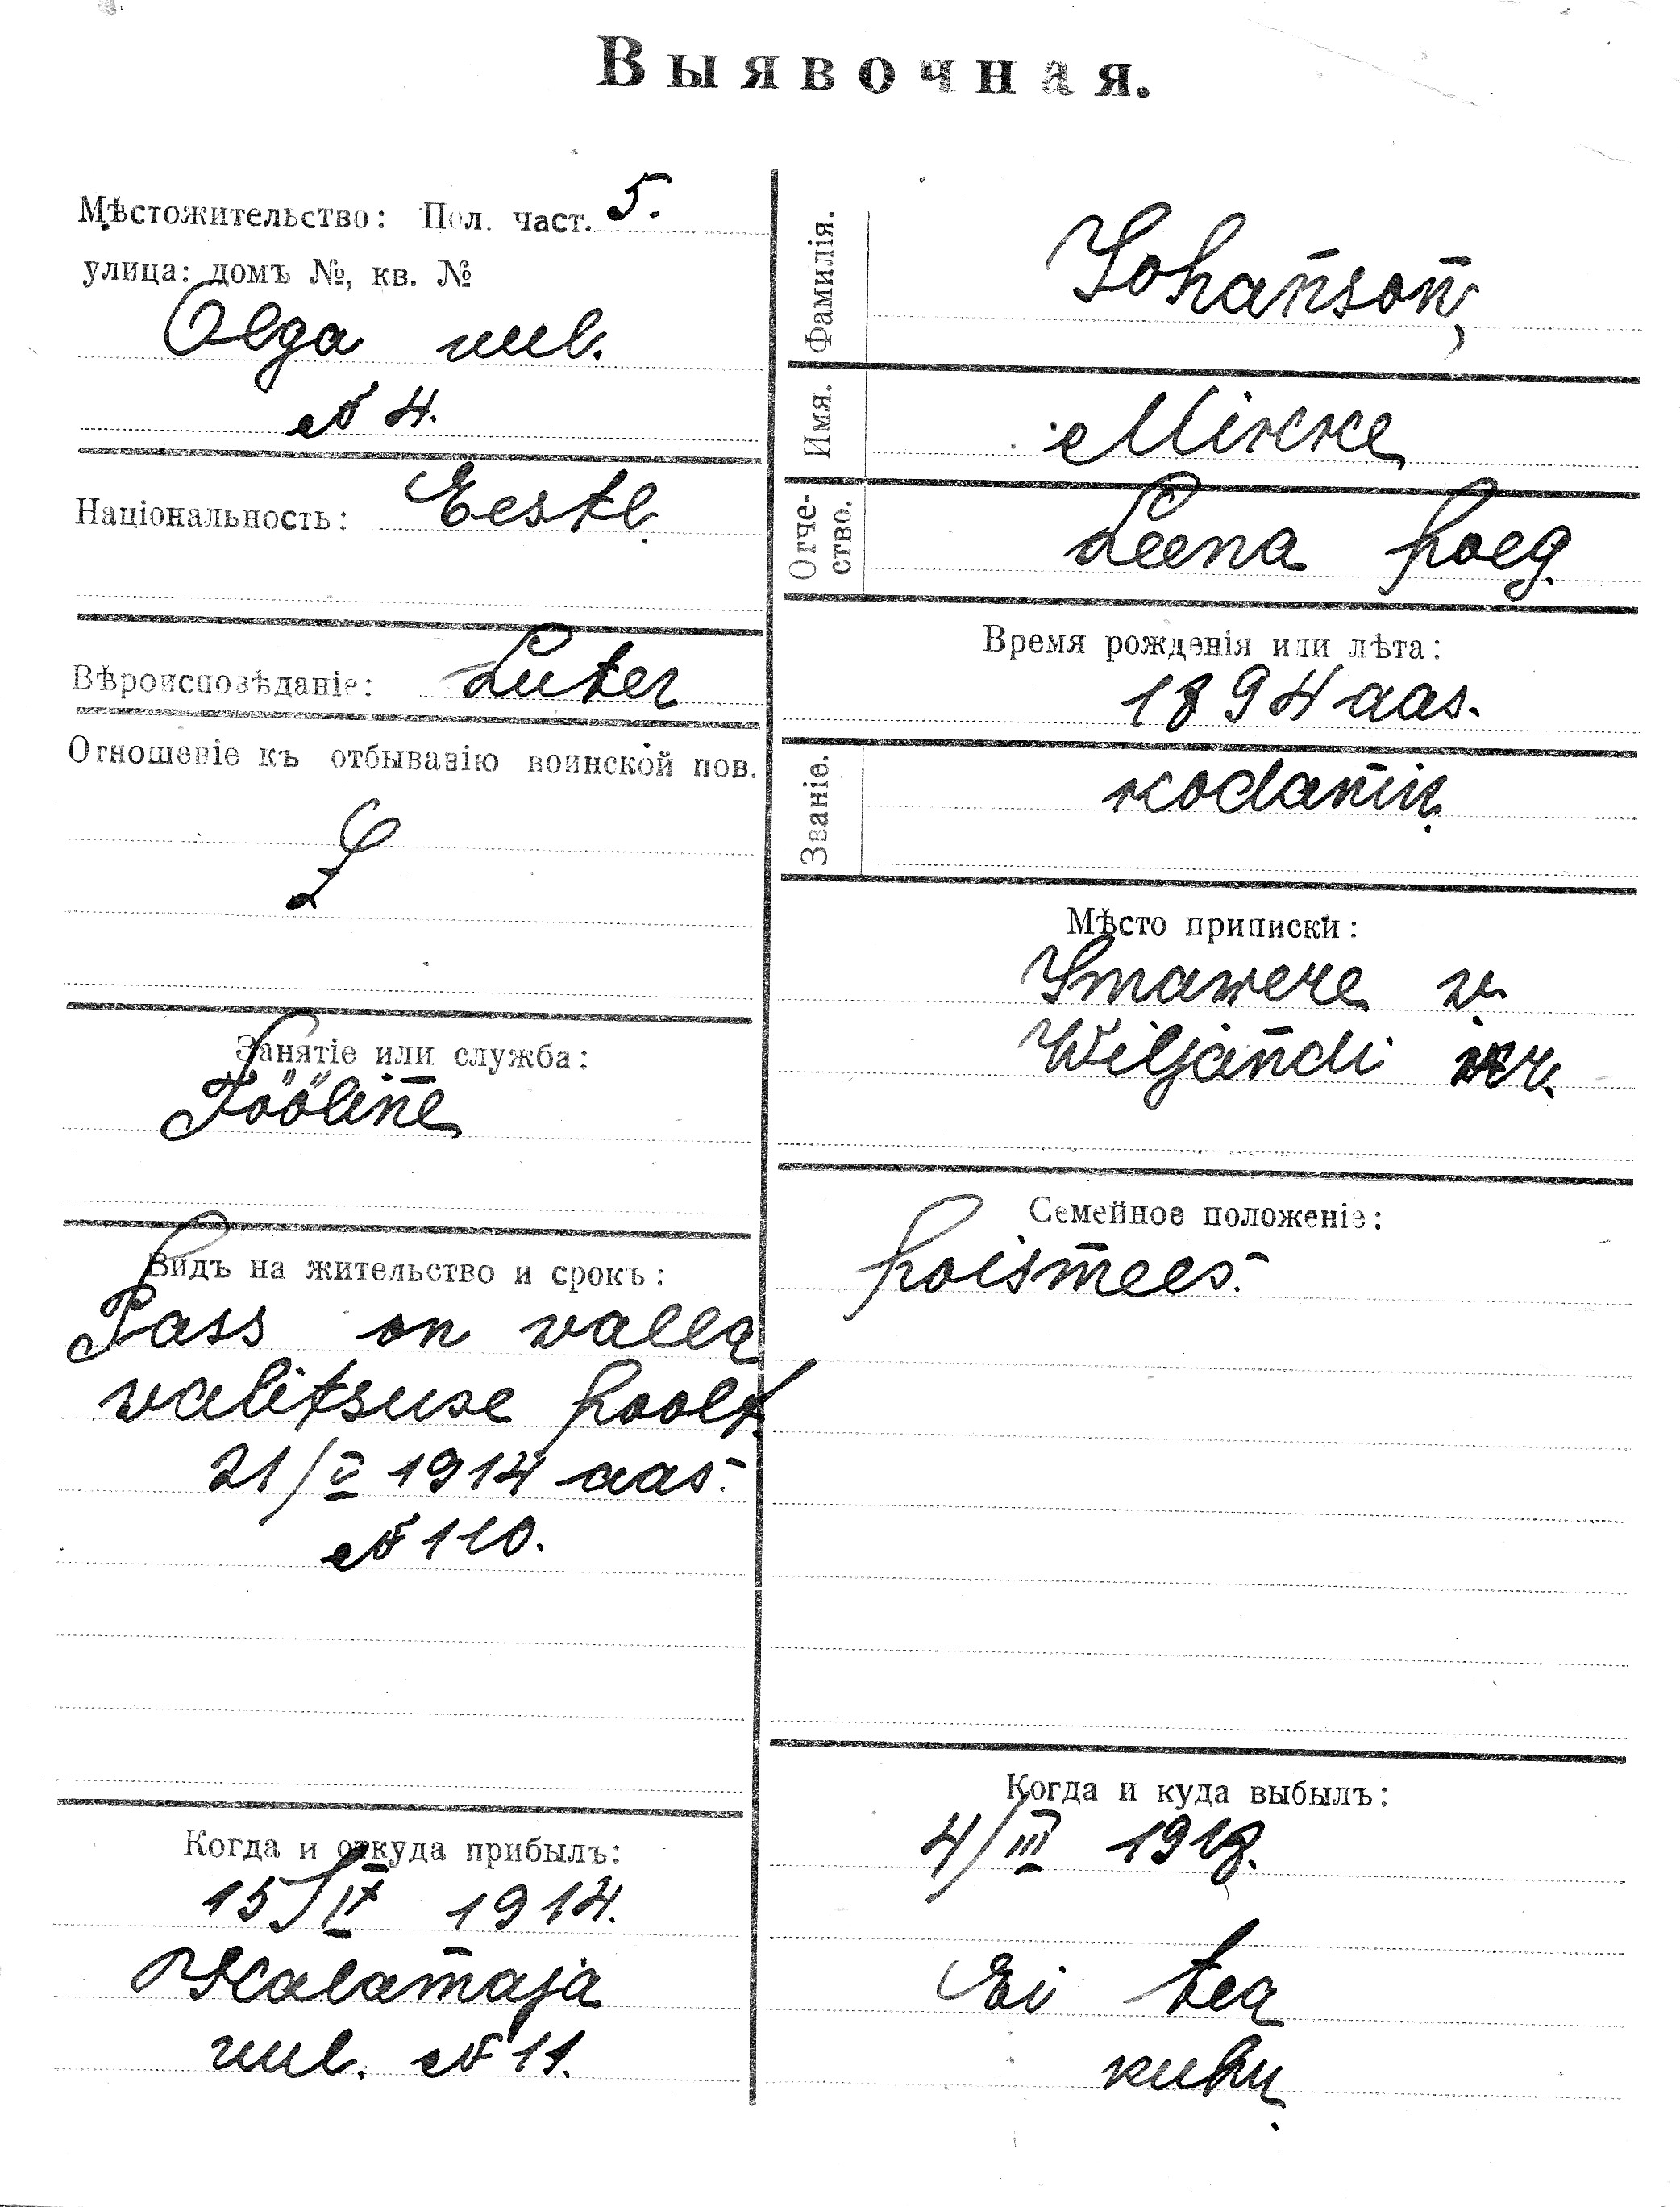 Выявочная.
Мѣстожительство: Пол. част. 5.
улица: домъ №, кв. №
Olga uul.
№ 4.
Національность: Eestl.
Вѣроисповѣданіе: Luter
Отношеніе къ отбыванію воинской пов.
Занятіе или служба:
Tööline
Видъ на жительство и срокъ:
Pass on valla
valitsuse poolt
21/V 1914 aas.
№ 110.
Когда и откуда прибылъ:
15/IX 1914.
Kalamaja
uul. № 11.
Фамилія. Johanson,
Имя. Mikke
Отче-
ство. Leena poeg.
Время рожденія или лѣта:
1894 aas.
Званіе. kodanik.
Мѣсто приписки:
Imawere v.
Wiljandi kr.
Семейное положеніе:
poismees.
Когда и куда выбылъ:
4/III 1918.
Ei tea
kuhu.